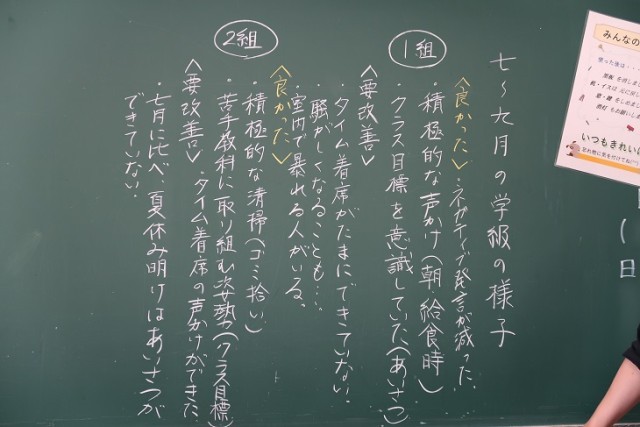 みんなの
使った後は・・・
いつもきれいに
（日
七～九月の学級の様子
1組
＜良かった＞・ネガティブ発言が減った.
・積極的な声かけ（朝、給食時）
・クラス目標を意識していた（あいさつ）
＜要改善＞
・タイム着席がたまにできていない.
・騒がしくなることも….
・室内で暴れる人がいる。
2組
＜良かった＞
・積極的な清掃（ゴミ拾い）
・苦手教科に取り組む姿勢（クラス目標）
＜要改善＞・タイム着席の声かけができた.
・七月に比べ、夏休み明けはあいさつが
できていない.